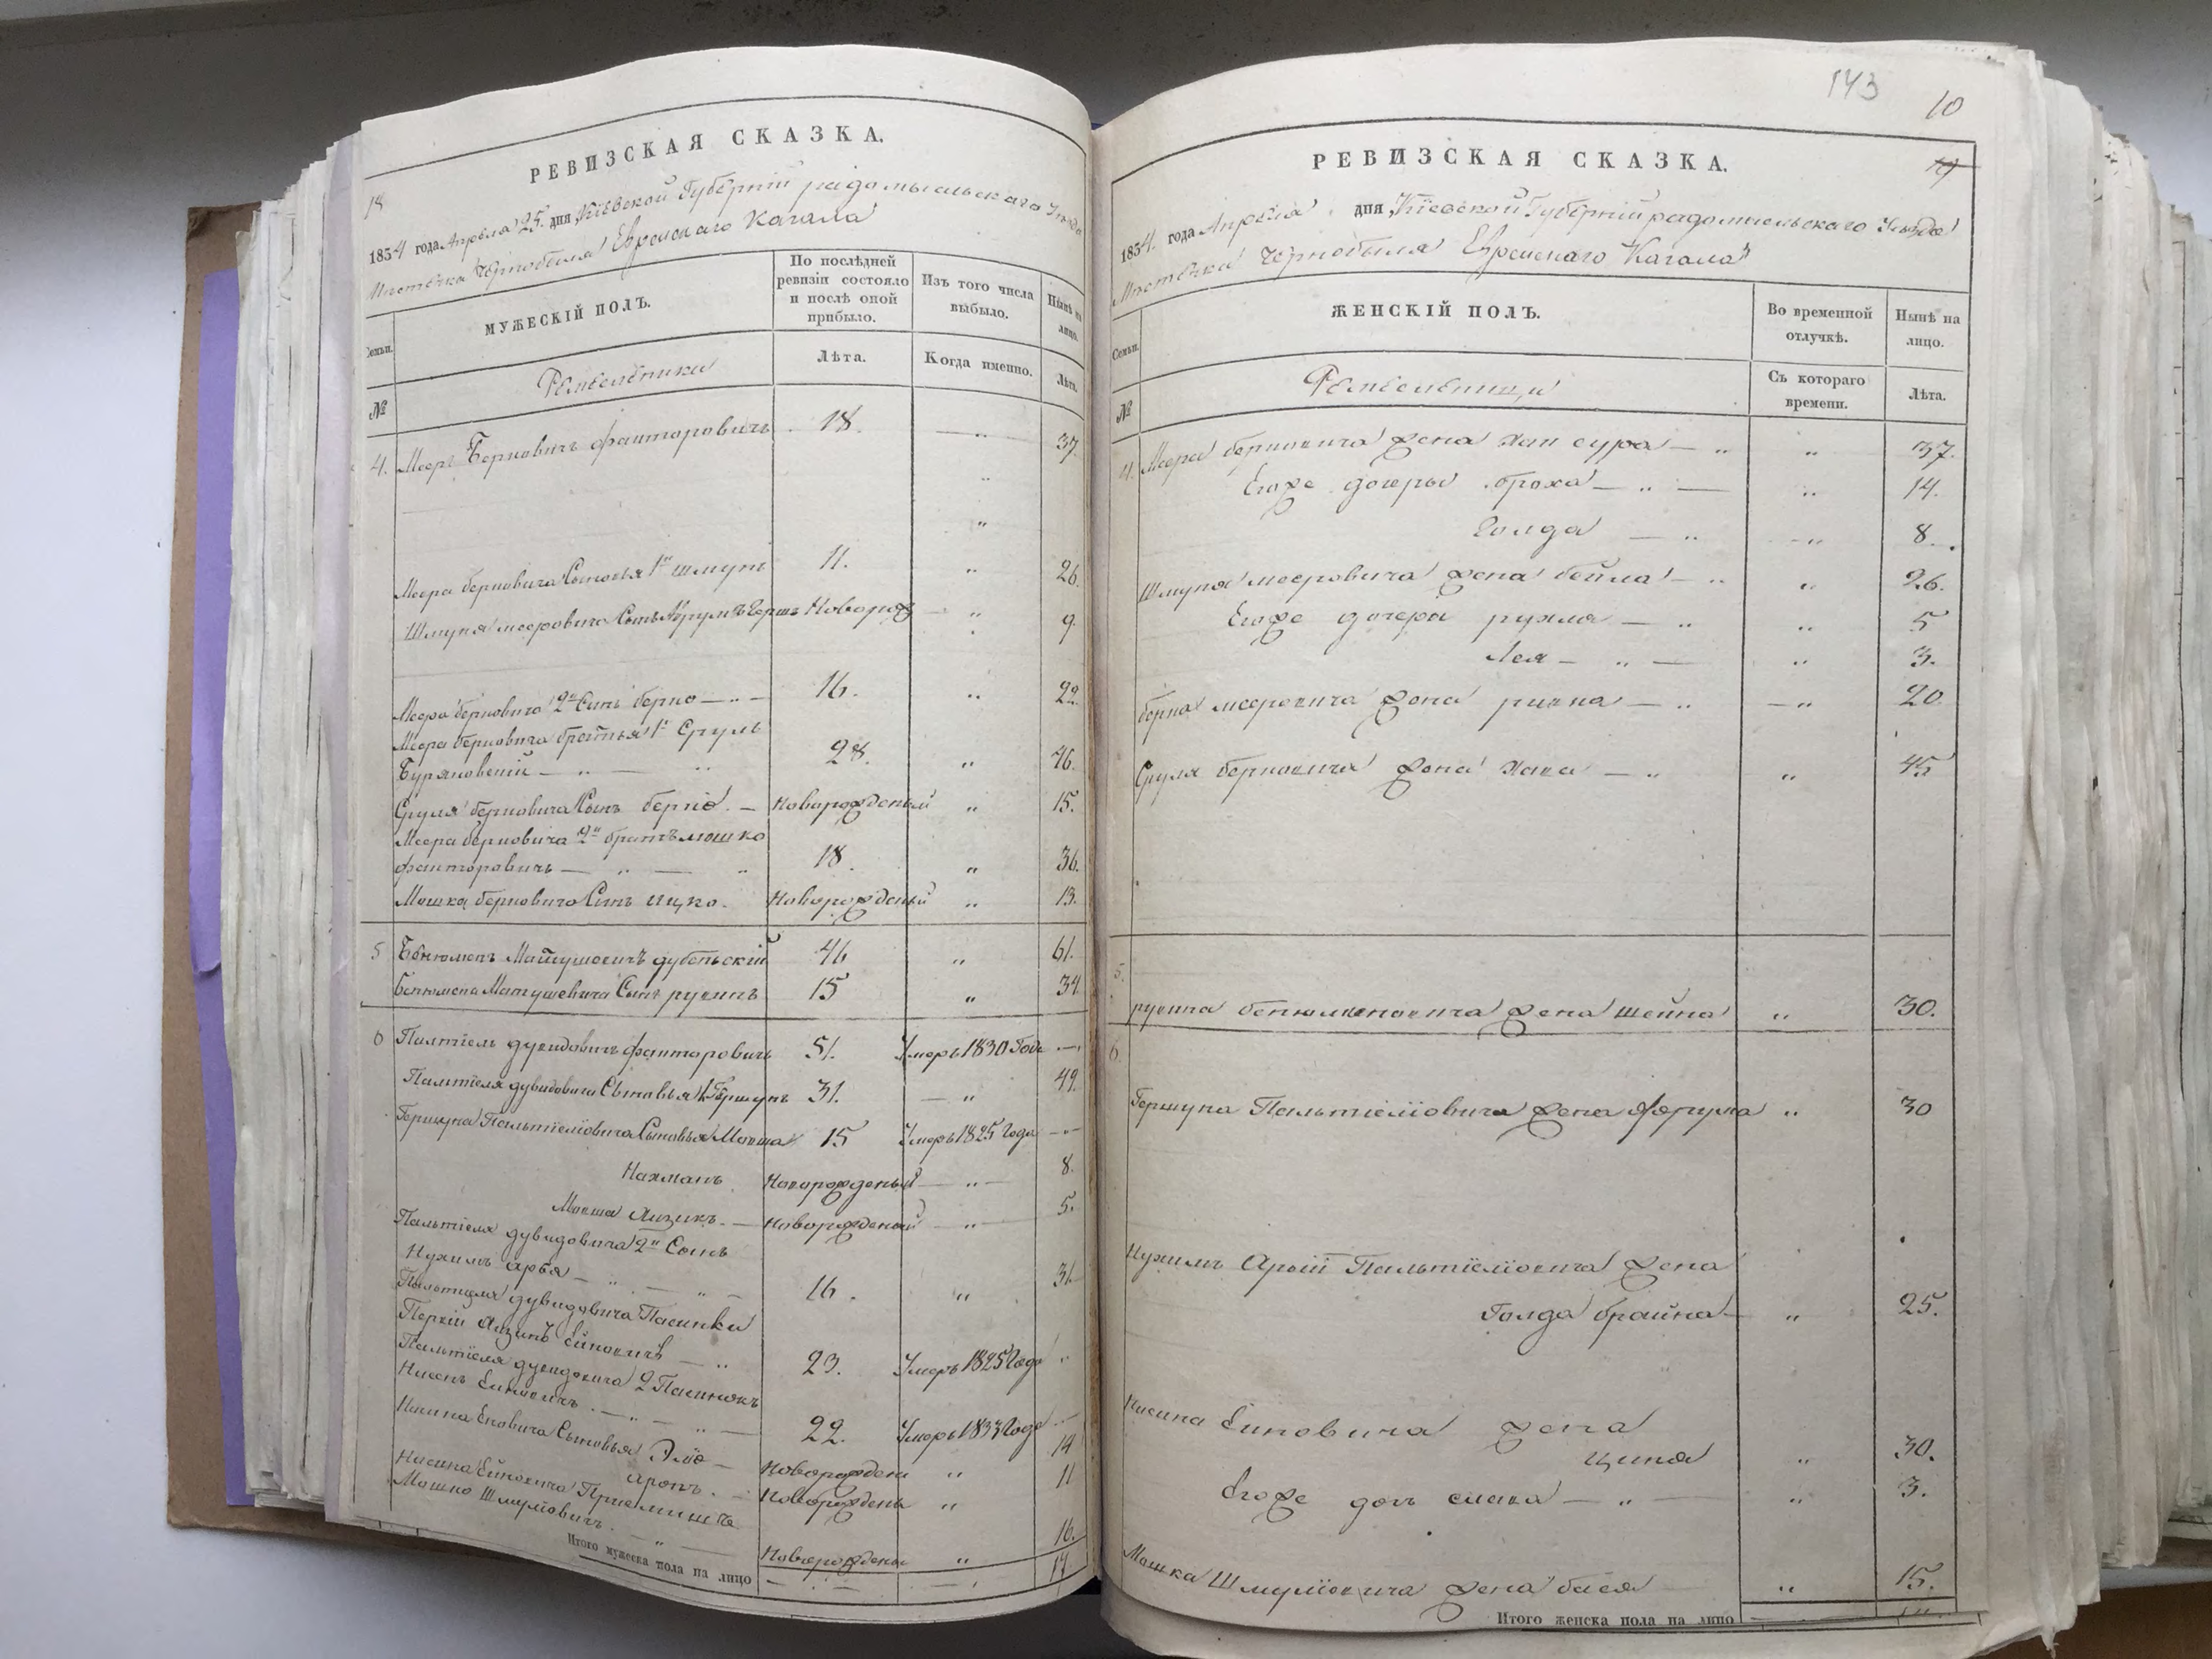 РЕВИЗСКАЯ СКАЗКА.
18
1854 года Апреля 25. дня, Кіевской Губерніи радомысльскаго Уѣзда
Мистечка Чернобыля Еврейскаго Кагала
Семьи.
МУЖЕСКІЙ ПОЛЪ.
По послѣдней ревизіи состояло и послѣ оной прибыло.
Изъ того числа выбыло.
Нынѣ на лицо.
№
Лѣта.
Когда именно.
Лѣта.
4. Мееръ Берковичъ факторовичъ 18. — „ 37.
„
„
Меера берковича Сыновья 1й шмуль 11. „ 26.
Шмуля мееровича Сынъ Герш Новорож — „ 9.
Меера берковича 2й Сынъ берко — „ — 16. „ 22.
Меера берковича братья 1й Сруль
Буряковскій — „ — „ 28. „ 46.
Сруля берковича Сынъ берко. — Новорожденный „ 15.
Меера берковича 2й братъ мошко
факторовичъ — „ — „ 18. „ 36.
Мошка берковича Сынъ ицко. Новорожденый „ 13.
5 Матушевичъ дубенскій 46 „ 61.
Матушевича Сынъ рувинъ 15 „ 34.
6 Палтіель дувидовичъ факторовичъ 51. Умеръ 1830 Года — „
Палтіеля дувидовича Сыновья 1. Гершунъ 31. — „ 49.
Гершуна Пальтіеліовича Сыновья Мовша 15 Умеръ 1825 Года — „
Нахманъ Новорожденый — „ — 8.
Мовша Айзикъ. — Новорожденый — „ 5.
Пальтіеля дувидовича 2й Сынъ
Нухимъ арья — „ — „ — 16. „ 31
Пальтіеля дувидовича Пасинки
Первій Айзикъ — „ 23. Умеръ 1825 Года „
Пальтіеля дувидовича 2 Пасинокъ
Нисенъ — „ — „ 22. Умеръ 1833 Года — „
Сыновья — Новорожден „ 14
Аронъ. — Новорожденъ „ 11
Нисина Приемишъ
Мошко Шмулiовичъ. „ — Новорожденъ „ 16.
Итого мужеска пола на лицо — „ — — „ 17.
143
10
РЕВИЗСКАЯ СКАЗКА.
1854. года Апреля дня, Кіевской Губерніи радомысльскаго Уѣзда
Мистечка Чернобыля Еврейскаго Кагала
Семьи.
ЖЕНСКІЙ ПОЛЪ.
Во временной отлучкѣ.
Нынѣ на лицо.
№
Съ котораго времени.
Лѣта.
4. Меера берковича жена хая сура — „ „ 37.
Егоже дочеры броха — „ — „ 14.
Голда — „ — „ 8.
Шмуля мееровича жена бейла — „ „ 26.
Егоже дочери рухля — „ „ 5
Лея — „ — „ 3.
берка мееровича жена ривка — „ — „ 20
Сруля берковича жена хава — „ „ 45
5.
рувина жена шейна „ 30.
6.
Гершуна Пальтіеліовича жена фрума „ 30
Нухимъ Арьи Пальтіеліовича жена
Голда брайна — „ 25.
Нисина жена
ципа „ 30.
Егоже дочь слава — „ — „ 3.
Мошка Шмулiовича жена бася „ 15.
Итого женска пола на лицо